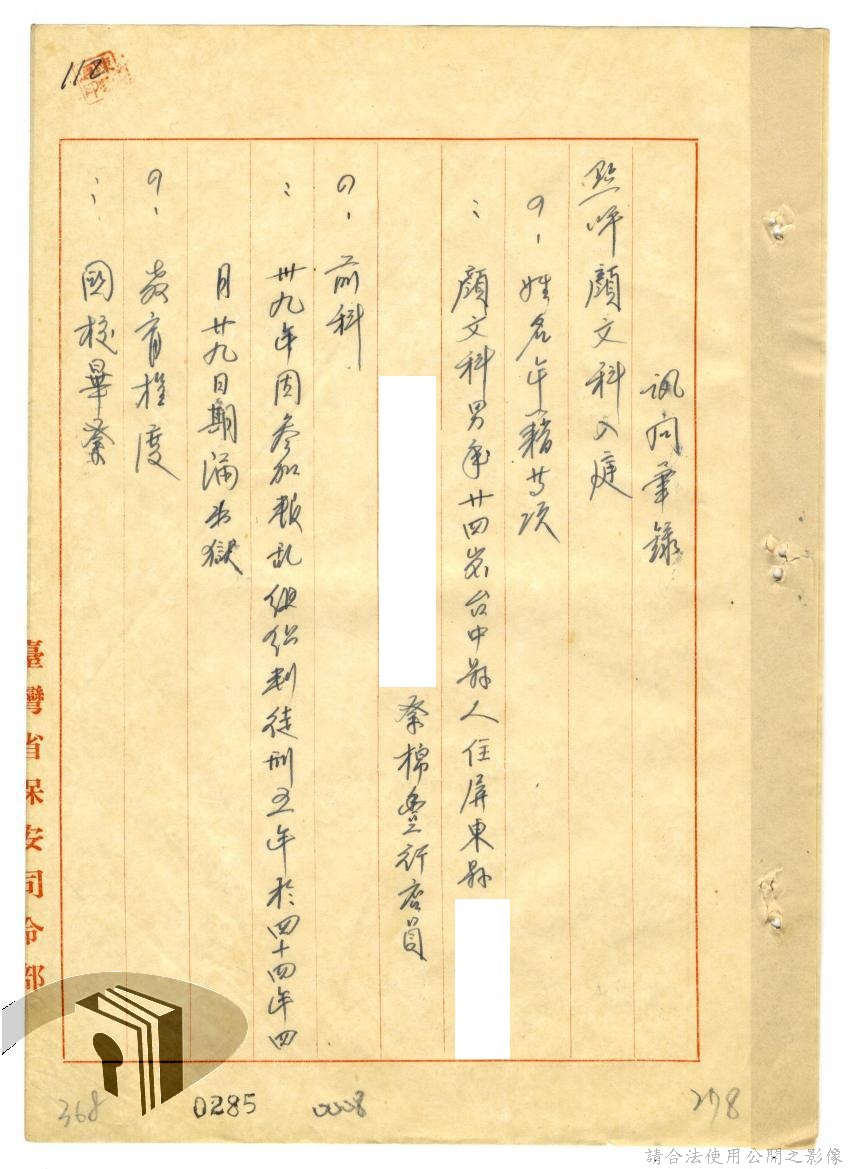 訊问筆錄
点呼顏文科入庭
問：姓名年籍等項
：顏文科男年廿四岁台中縣人住屏東縣
業棉豐行店員
問：前科
：卅九年因參加叛乱組织判徒刑五年於四十四年四
月廿九日期滿出獄
問：教育程度
：國校畢業
臺灣省保安司令部
118
368
0285
0008
278
請合法使用公開之影像